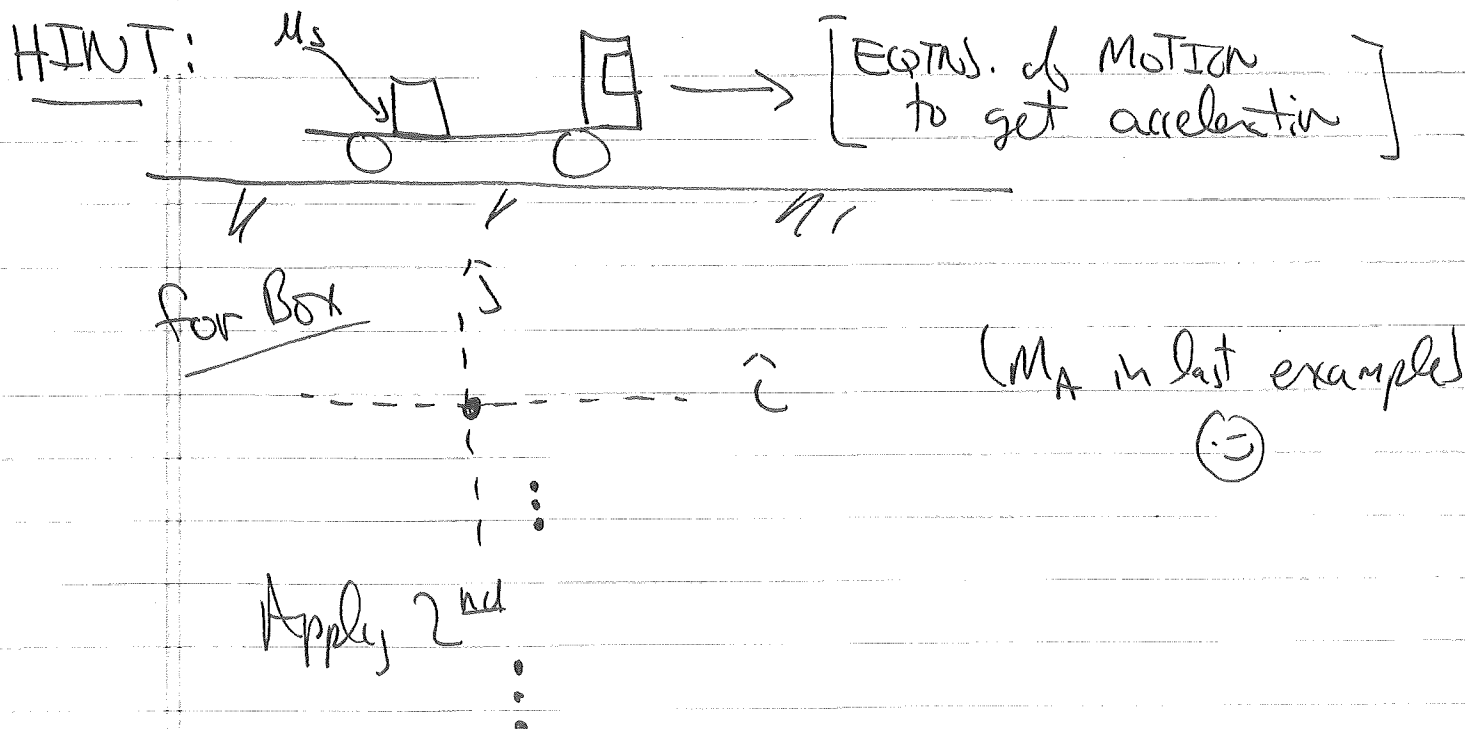 HINT: μs
[EQTNS. of MOTION
to get acceleratin]
for Box
ĵ
î
(MA in last example)
Apply 2nd